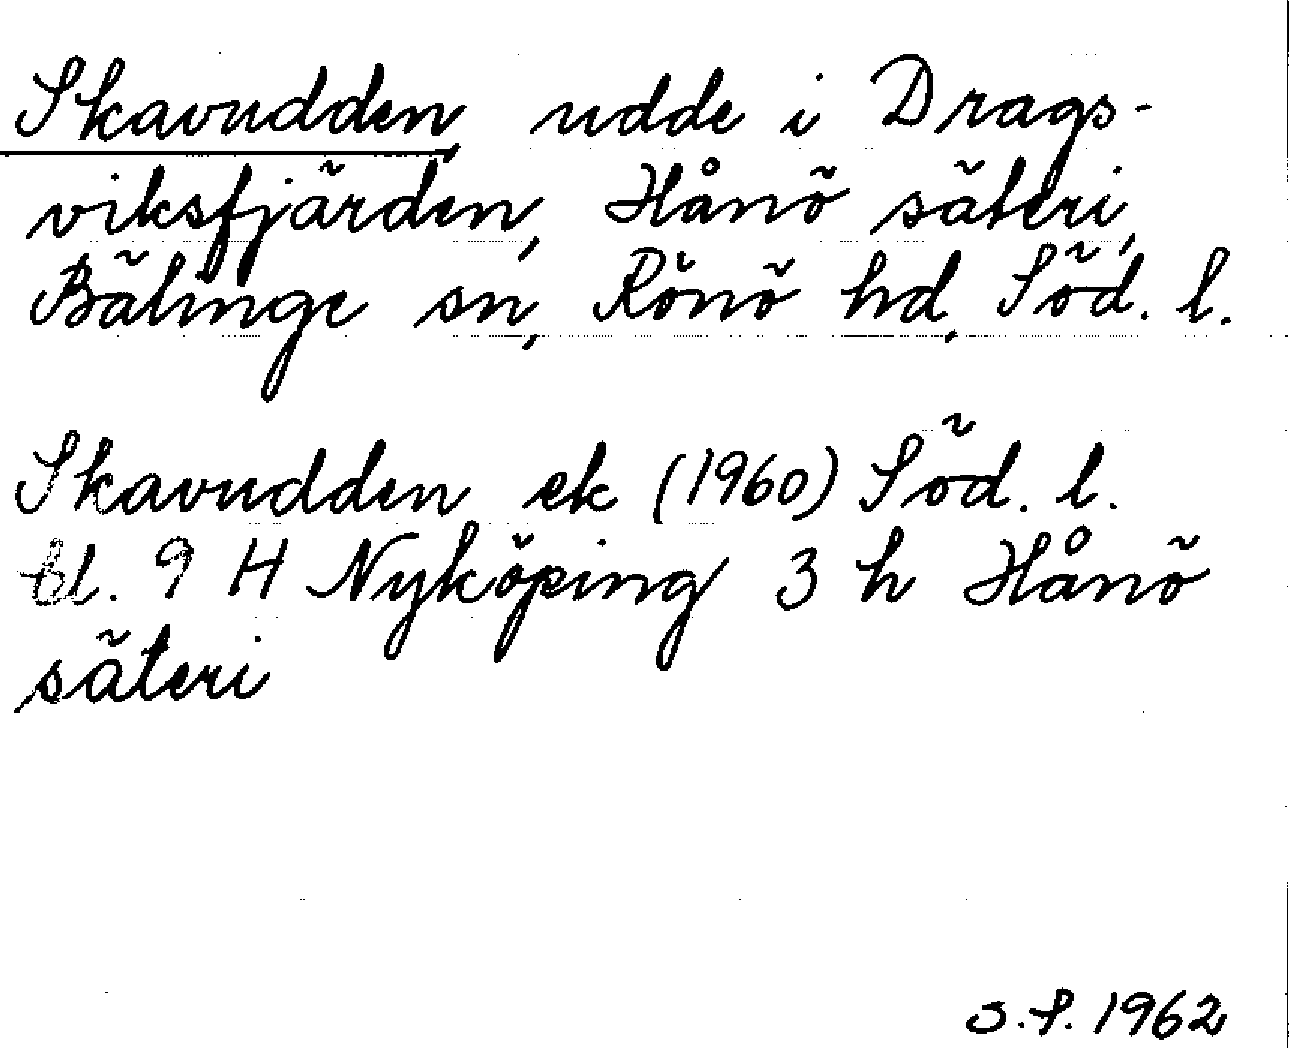 Skavudden, udde i Drags-
viksfjärden, Hånö säteri,
Bälinge sn, Rönö hd, Söd. l.
Skavudden ek (1960) Söd. l.
bl. 9 H Nyköping 3 h Hånö
säteri
S.F. 1962